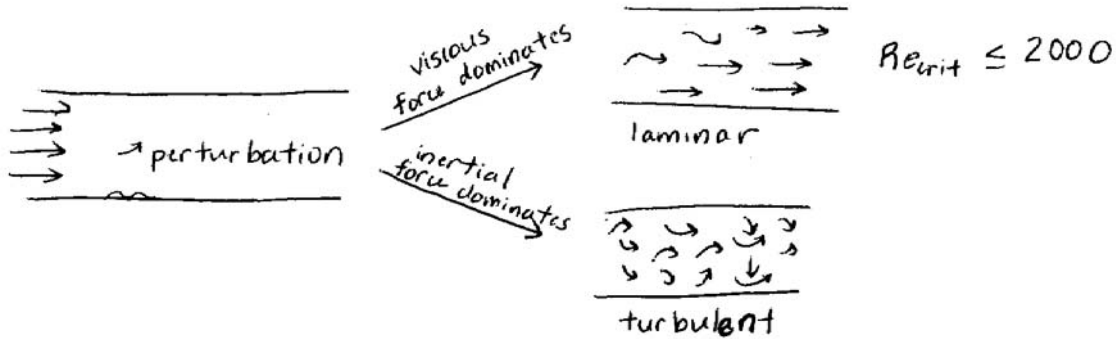 perturbation
viscous
force dominates
laminar
Re_crit ≤ 2000
inertial
force dominates
turbulent